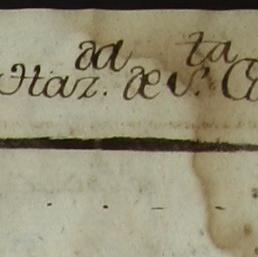 da ta
Haz. de S. C